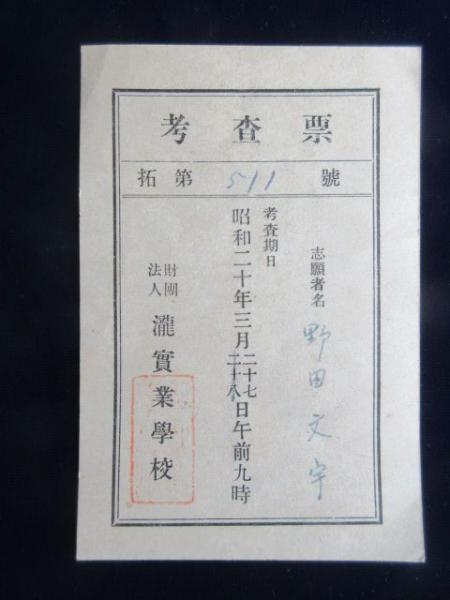 考査票
拓第 511 號
志願者名 野田文宇
考査期日
昭和二十年三月二十七二十八日午前九時
財團法人 瀧實業學校